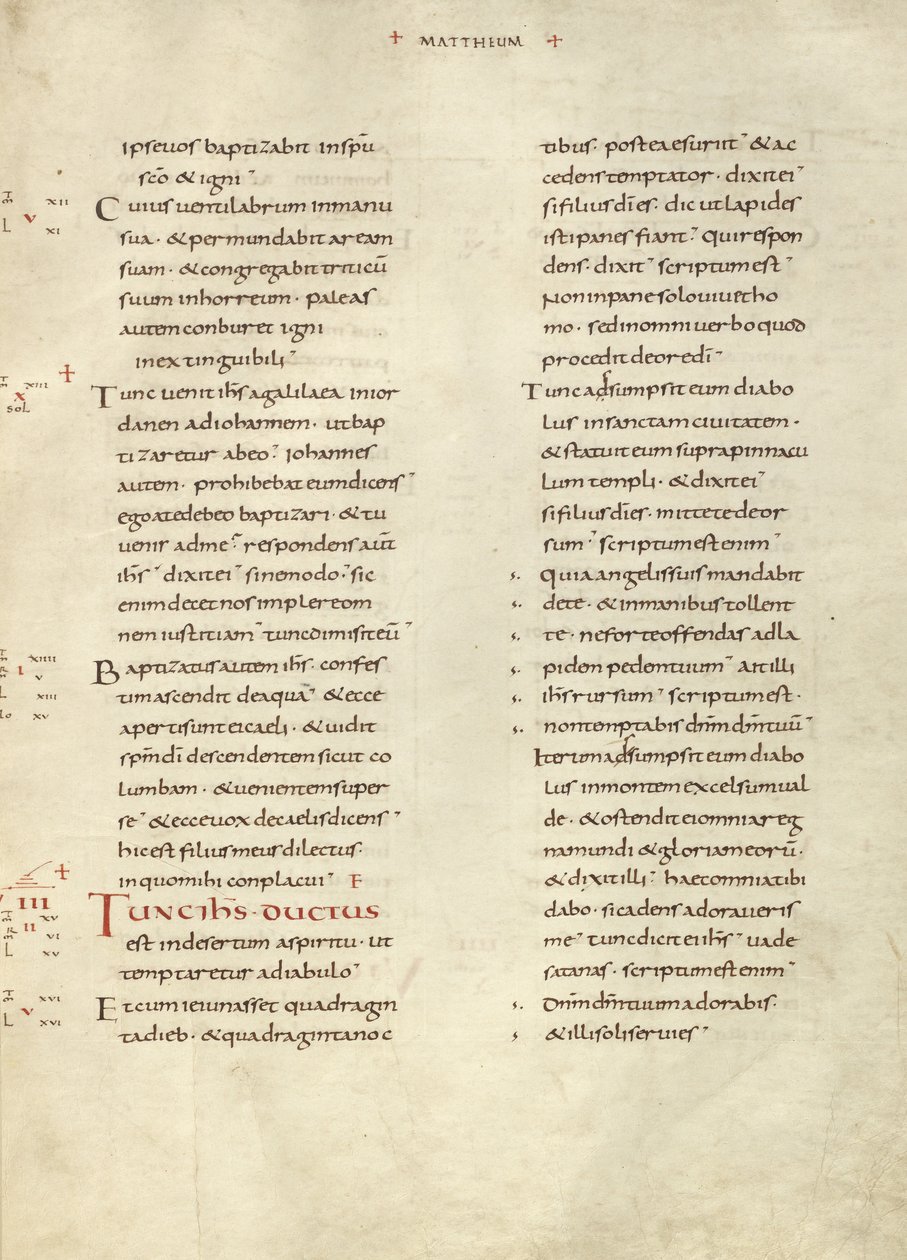 + MATTHEUM +
ipse uos baptizabit in sp̄u
sc̄o & igni
Cuius uentilabrum in manu
sua · & permundabit aream
suam · & congregabit triticū
suum in horreum · paleas
autem conburet igni
inextinguibili
XII
V
L
XI
Tunc uenit ih̄s a galilaea in ior
danen ad iohannem · ut bap
tizaretur ab eo · iohannes
autem · prohibebat eum dicens
ego a te debeo baptizari · & tu
uenis ad me · respondens aūt
ih̄s dixit ei sine modo · sic
enim decet nos implere om
nem iustitiam tunc dimisit eū
+
XIII
X
SOL
Baptizatus autem ih̄s · confes
tim ascendit de aqua & ecce
aperti sunt ei caeli · & uidit
sp̄m dī descendentem sicut co
lumbam · & uenientem super
se & ecce uox de caelis dicens
hic est filius meus dilectus ·
in quo mihi conplacui F
XIIII
I
V
XIII
XV
TUNC IH̄S · DUCTUS
est in desertum a spiritu · ut
temptaretur a diabulo
+
III
XV
II
VI
L
XV
Et cum ieiunasset quadragin
ta dieb · & quadraginta noc
XVI
V
L
XVI
tibus · postea esuriit & ac
cedens temptator · dixit ei
si filius dī es · dic ut lapides
isti panes fiant · Qui respon
dens · dixit scriptum est
Non in pane solo uiuet ho
mo · sed in omni uerbo quod
procedit de ore dī
Tunc adsumpsit eum diabo
lus in sanctam ciuitatem ·
& statuit eum supra pinnacu
lum templi · & dixit ei
si filius dī es · mitte te deor
sum scriptum est enim
Quia angelis suis mandabit
de te · & in manibus tollent
te · ne forte offendas ad la
pidem pedem tuum Ait illi
ih̄s rursum scriptum est ·
non temptabis dn̄m dm̄ tuū
Iterum adsumpsit eum diabo
lus in montem excelsum ual
de · & ostendit ei omnia reg
na mundi & gloriam eorū ·
& dixit illi haec omnia tibi
dabo · si cadens adoraueris
me tunc dicit ei ih̄s uade
satanas · scriptum est enim
Dn̄m dm̄ tuum adorabis ·
& illi soli seruies